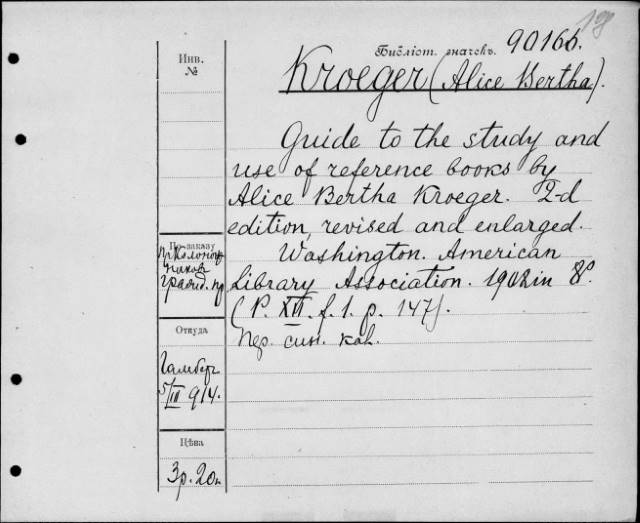 Библіот. значекъ. 90166.
Инв.
№
Kroeger (Alice Bertha).
Guide to the study and
use of reference books by
Alice Bertha Kroeger. 2-d
edition, revised and enlarged.
Washington. American
Library Association. in 8º.
(P. XII. f. 1. p. 147).
Пер. син. как.
По заказу
Откуда
5/III 914.
Цѣна
3р. 20к